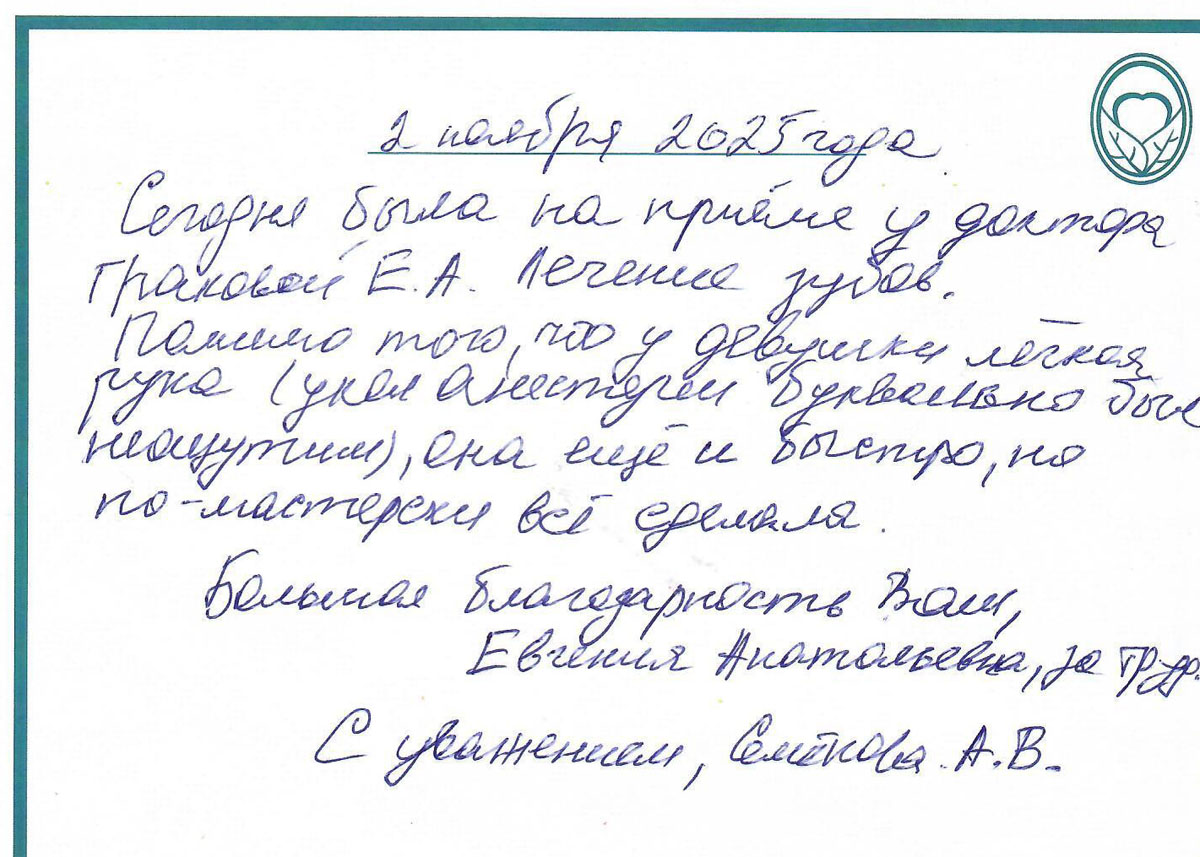 2 ноября 2025 года
Сегодня была на приёме у доктора
Граковой Е.А. Лечение зубов.
Помимо того, что у девушки лёгкая
рука (укол анестезии буквально был
неощутим), она ещё и быстро, но
по-мастерски всё сделала.
Большая благодарность Вам,
Евгения Анатольевна, за труд.
С уважением, Семёнова А.В.